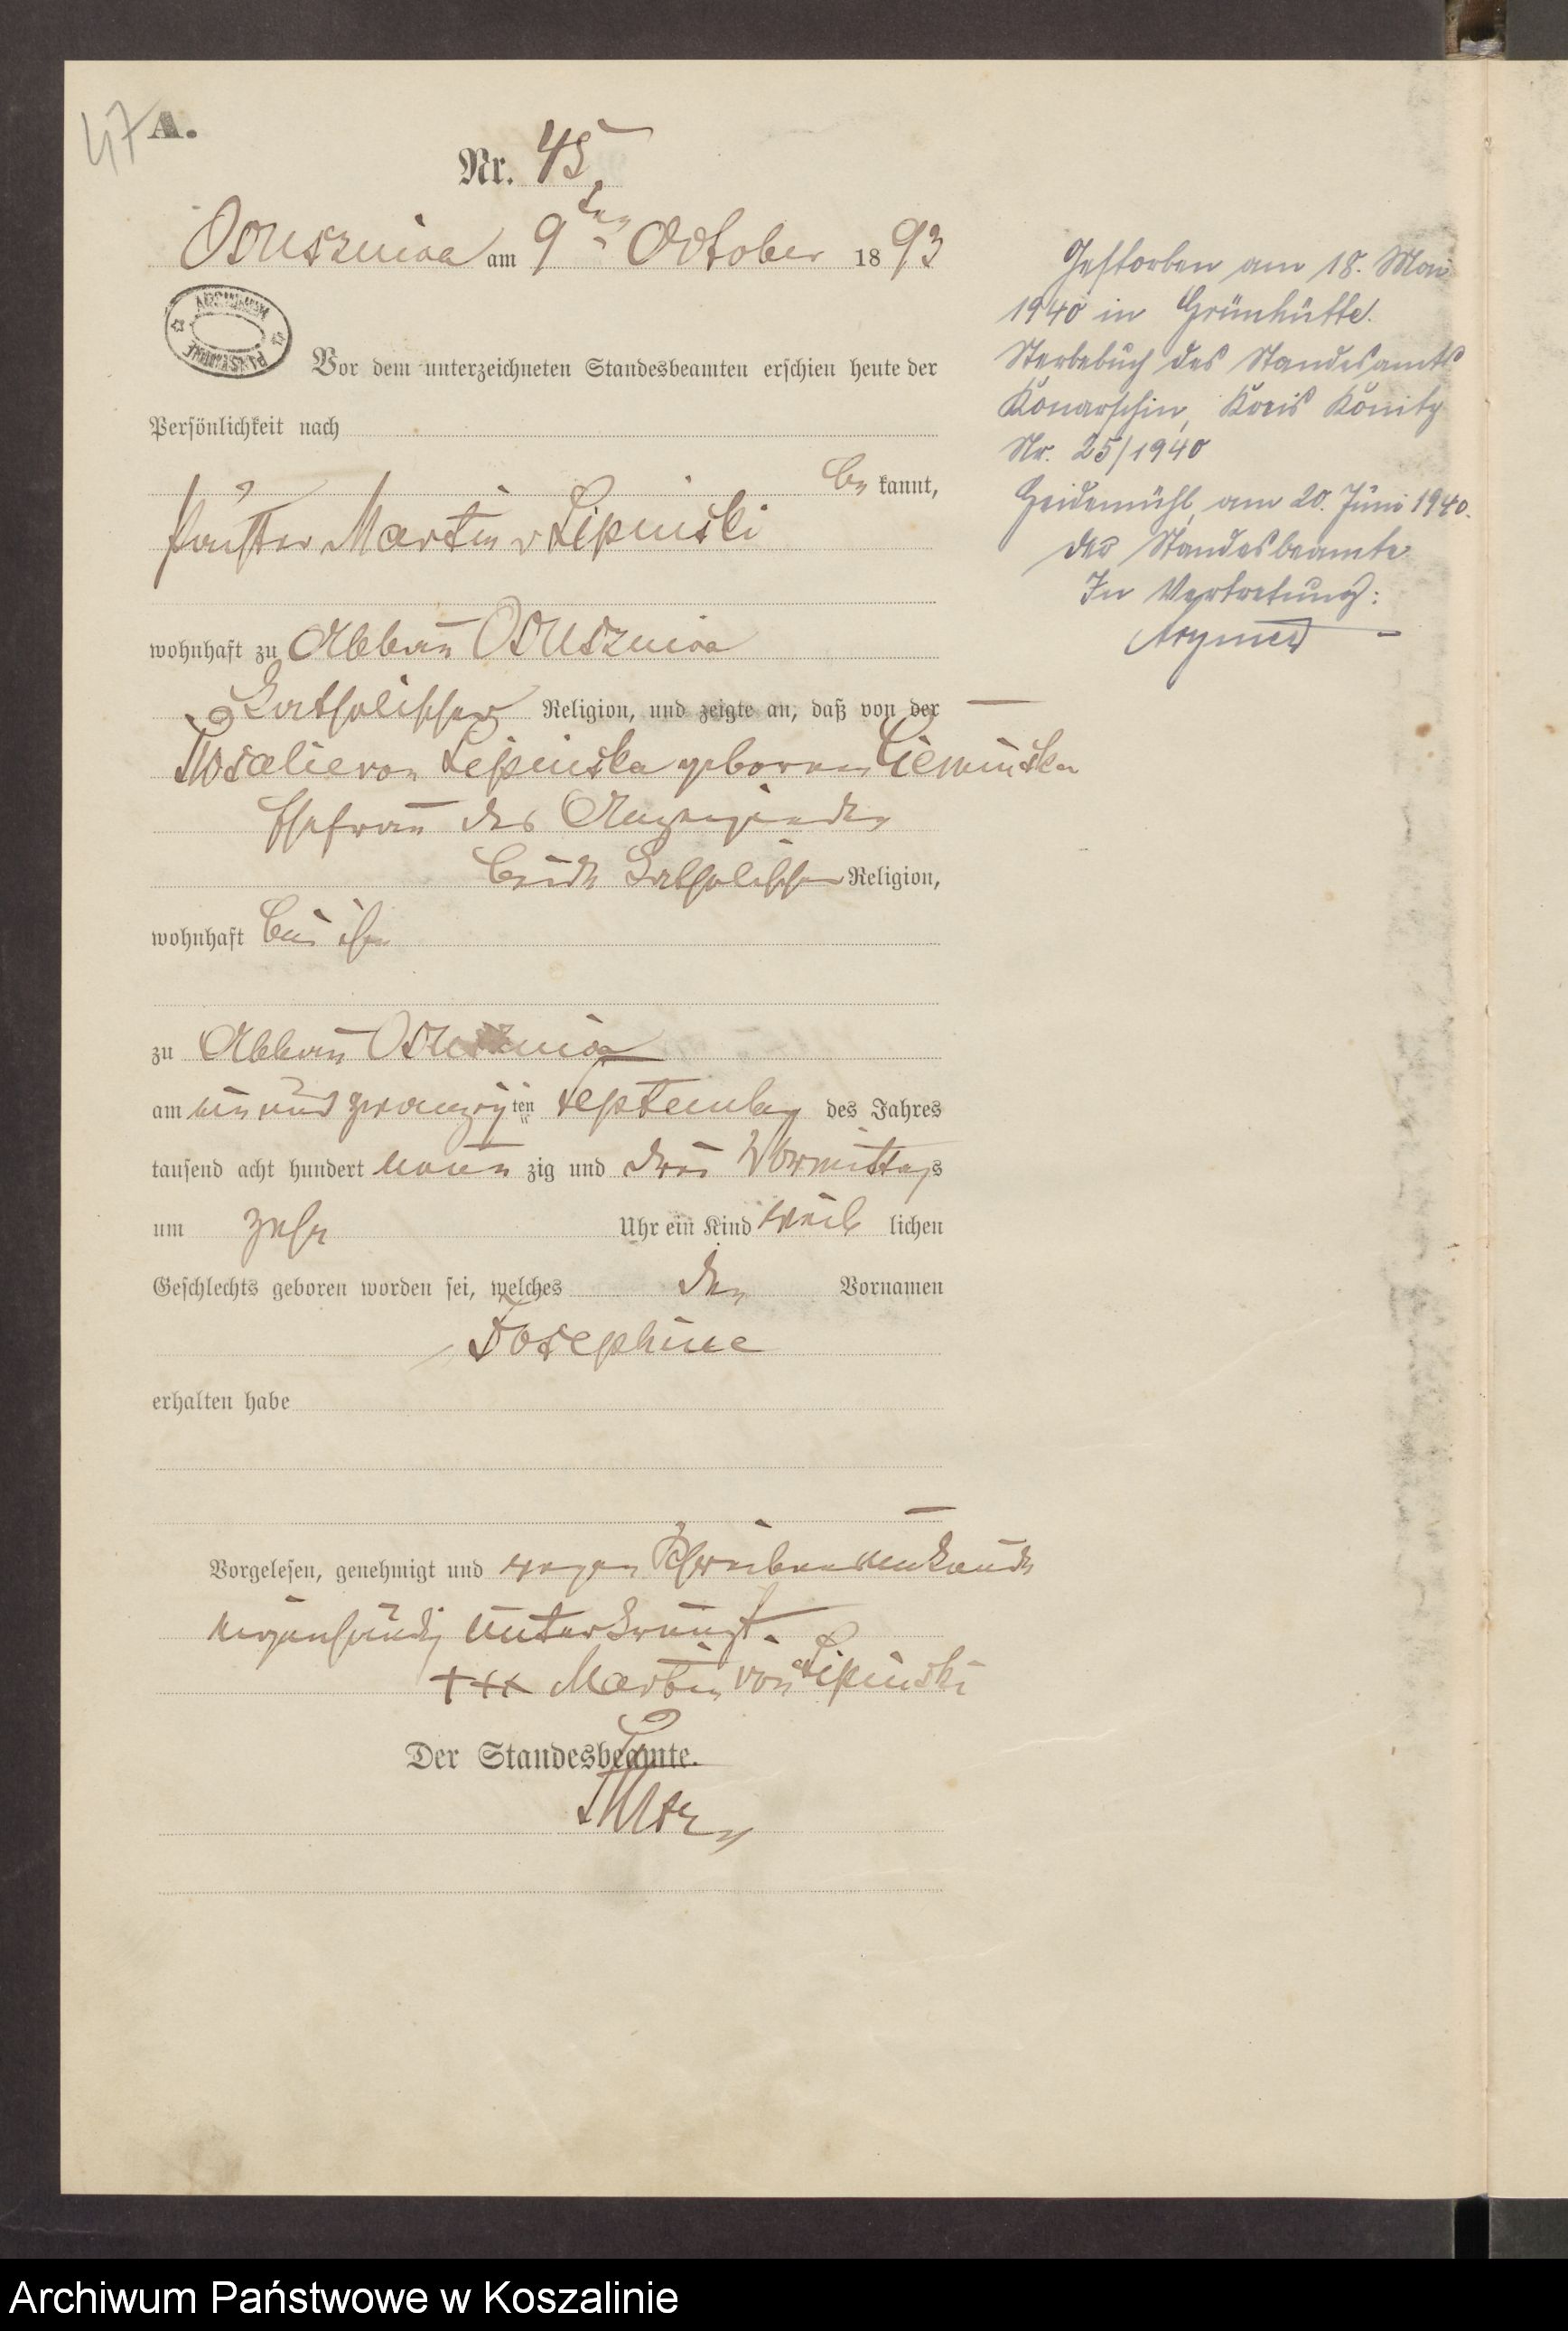 47
A.
Nr. 45.
Ossusznica am 9ten October 1893
ARCHIWUM PAŃSTWOWE
Vor dem unterzeichneten Standesbeamten erschien heute der
Persönlichkeit nach
be kannt,
Martin v Lipinski
wohnhaft zu Abbau Ossusznica
katholischer Religion, und zeigte an, daß von der
Rosalie von Lipinska geborenen Cieminska
Ehefrau des Anzeigenden
beide katholischer Religion,
wohnhaft bei ihm
zu Abbau Ossusznica
am ein und zwanzigten September des Jahres
tausend acht hundert neun zig und drei Vormittags
um zehn Uhr ein Kind weib lichen
Geschlechts geboren worden sei, welches den Vornamen
Josephine
erhalten habe
Vorgelesen, genehmigt und wegen Schreibensunkunde
eigenhändig unterkreuzt.
+++ Martin von Lipinski
Der Standesbeamte.
Gestorben am 18. Mai
1940 in Grünhütte.
Sterbebuch des Standesamts
Konarschin, Kreis Könitz
Nr. 25/1940
Heidemühl, am 20. Juni 1940.
Der Standesbeamte
In Vertretung:
Archiwum Państwowe w Koszalinie